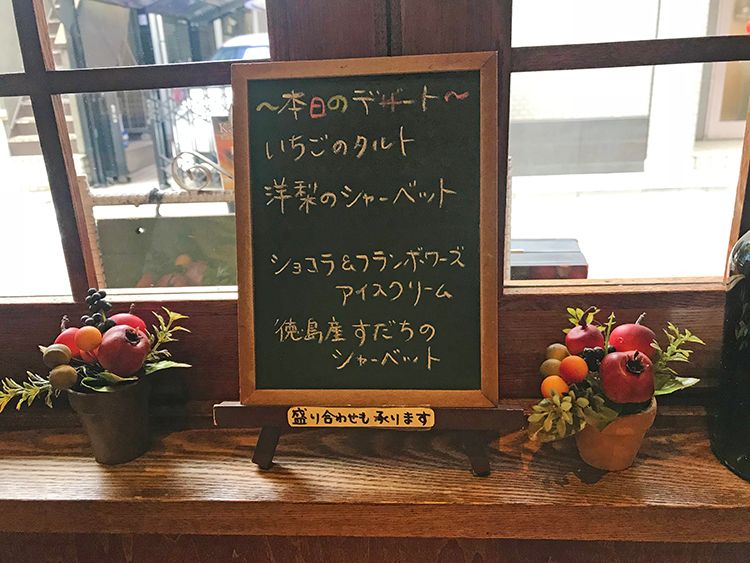 ～本日のデザート～
いちごのタルト
洋梨のシャーベット
ショコラ&フランボワーズ
アイスクリーム
徳島産すだちの
シャーベット
盛り合わせも承ります